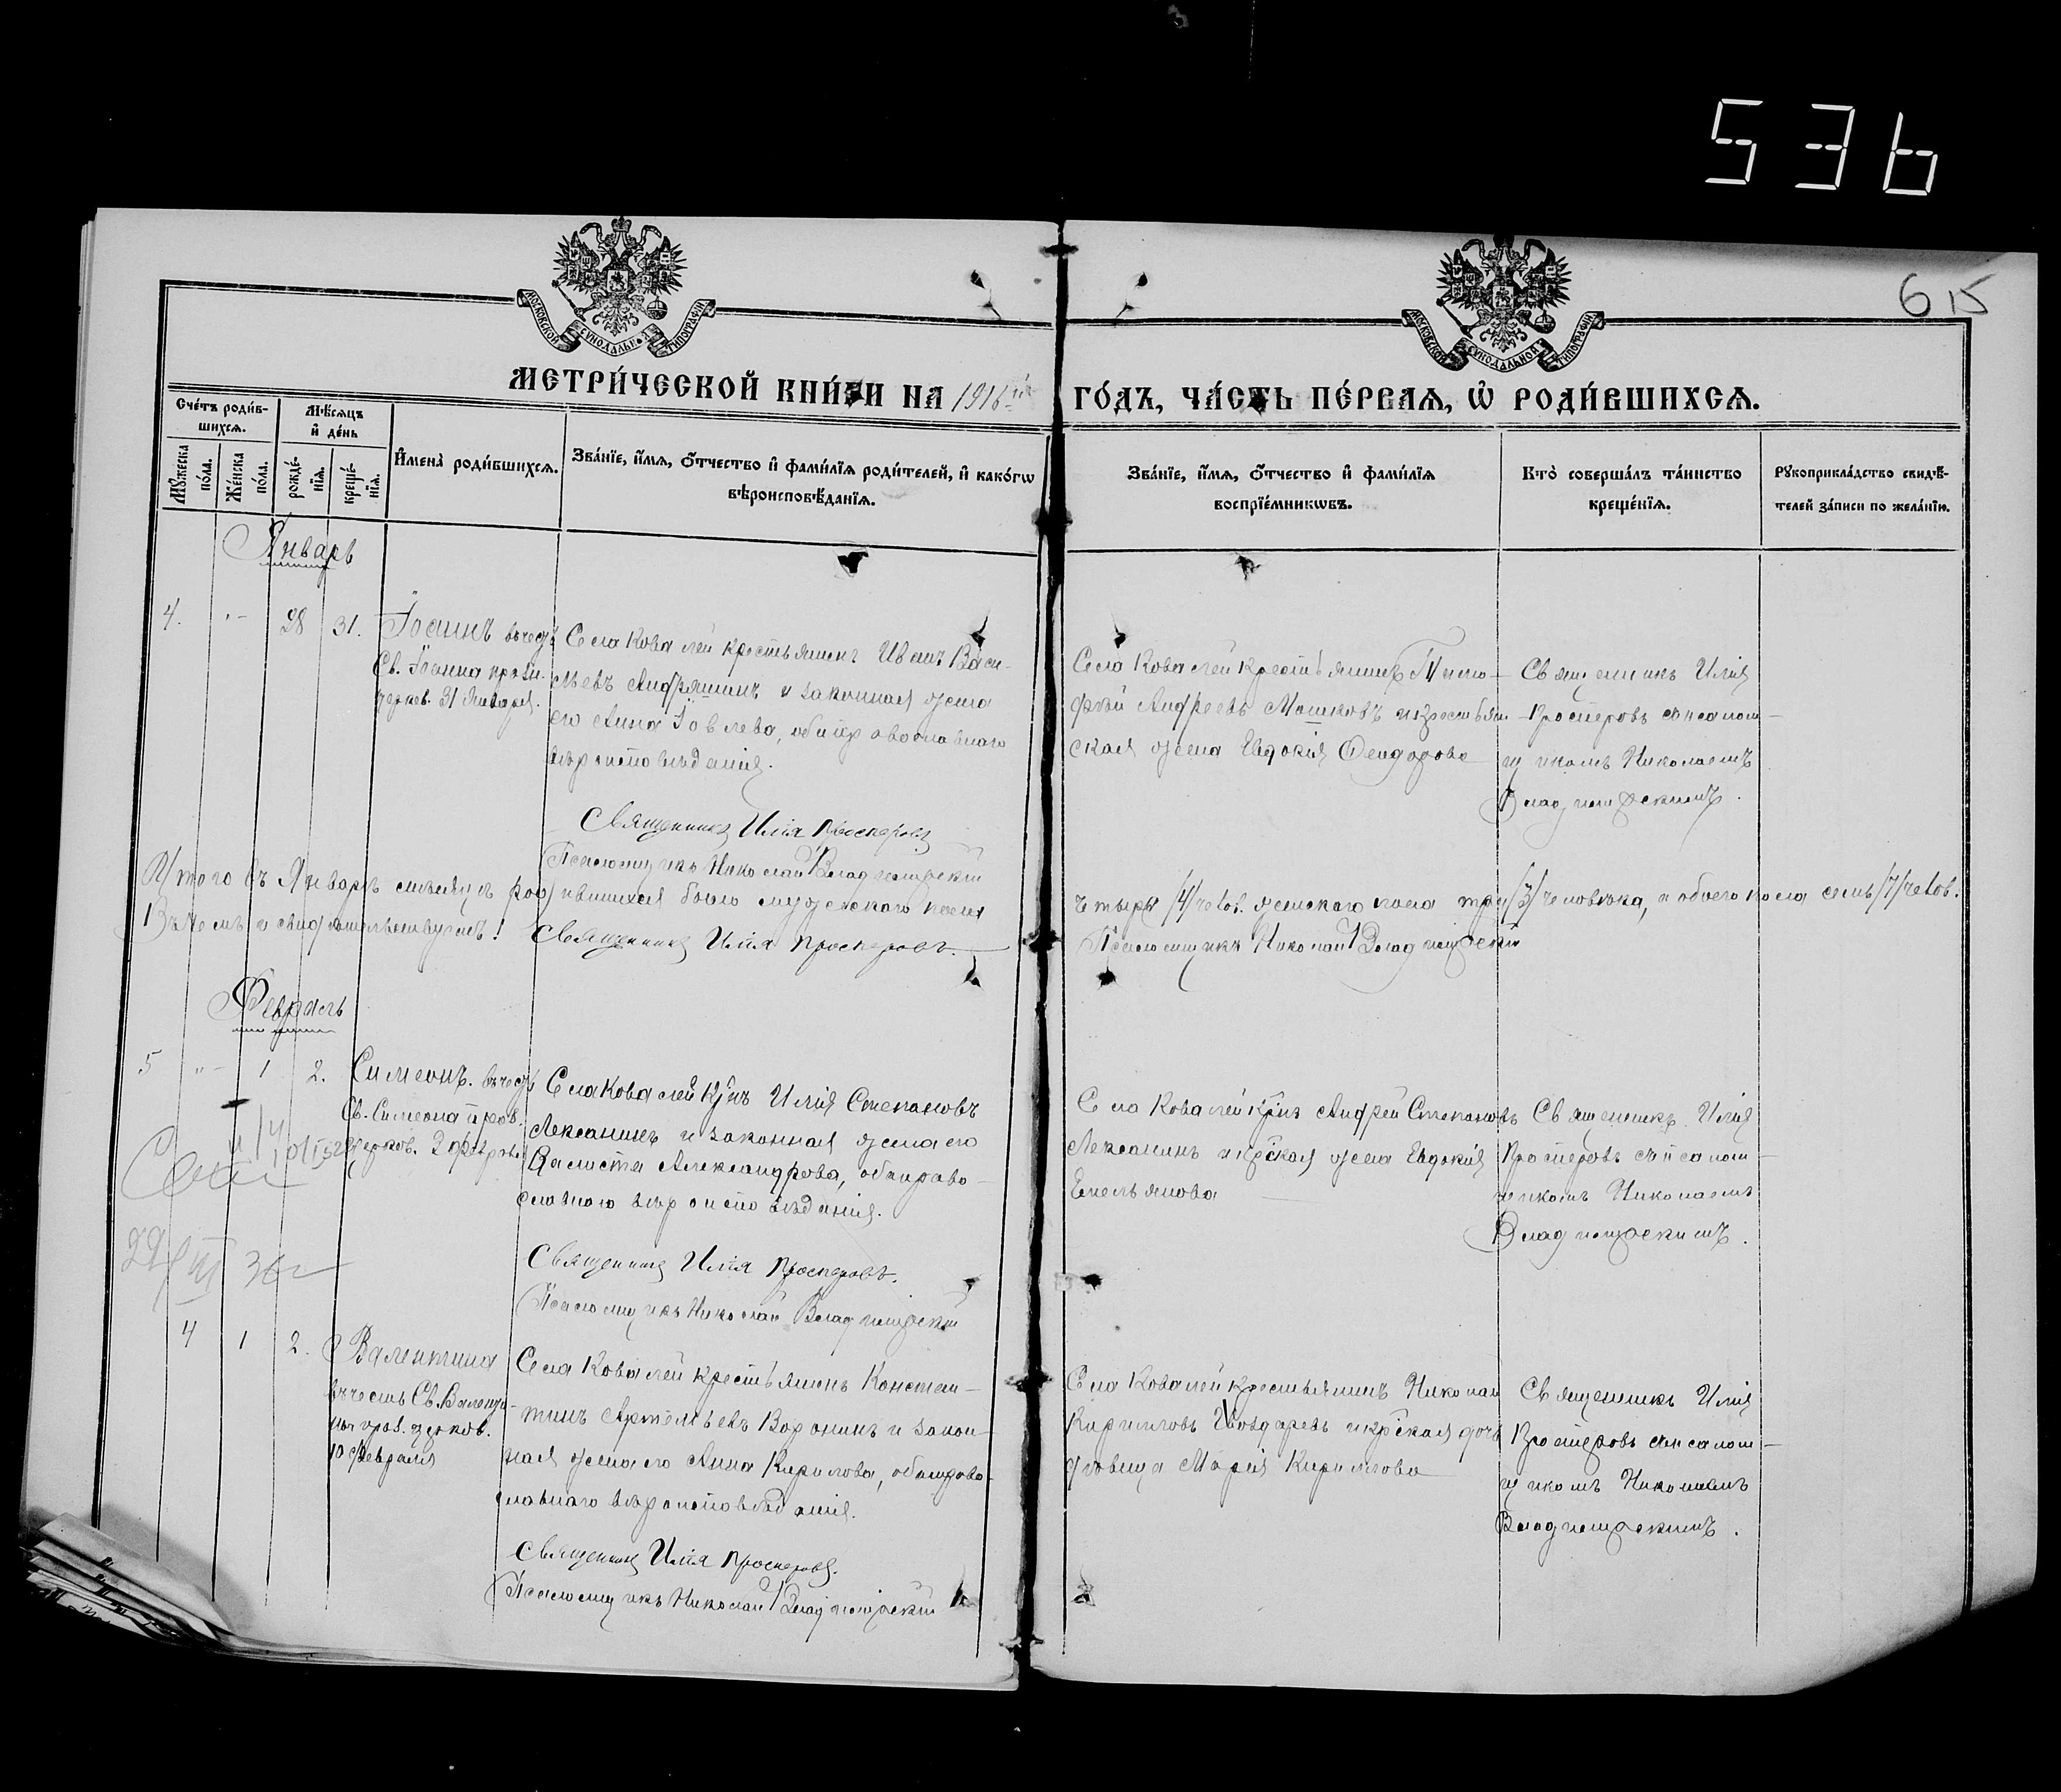 536
615
МОСКОВСКОЙ СУНОДАЛЬНОЙ ТИПОГРАФІИ
МОСКОВСКОЙ СУНОДАЛЬНОЙ ТИПОГРАФІИ
МЕТРИ́ЧЕСКОЙ КНИ́ГИ НА 1916й ГО́ДЪ, ЧА́СТЬ ПЕ́РВАЯ, Ѡ҆ РОДИ́ВШИХСЯ.
Сче́тъ роди́в-
шихся.
Мѣ́сяцъ
и҆ де́нь
Мꙋ́жеска
по́ла.
Же́нска
по́ла.
рожде́-
нїя.
креще́-
нїя.
И҆мена̀ роди́вшихся.
Зва́нїе, и҆́мя, ѻ҆́тчество и҆ фами́лїя роди́телей, и҆ како́гѡ
вѣроисповѣ́данїя.
Зва́нїе, и҆́мя, ѻ҆́тчество и҆ фами́лїя
воспрїе́мникѡвъ.
Кто̀ соверша́лъ та́инство
креще́нїя.
Рꙋкоприкла́дство свидѣ́-
телей за́писи по жела́нїю.
Январь
4. "- 28 31.
Іоаннъ въ честь
Св. Іоанна
31 Января.
Села Ковалей крестьянинъ Иванъ Васи-
льевъ Андряшинъ и законная жена
его Анна Іовлева, оба православнаго
вѣроисповѣданія.
Священникъ Илія Просперовъ
Псаломщикъ Николай Владимірскій
Села Ковалей крестьянинъ Тимо-
фей Андреевъ Машковъ и крестьян-
ская жена Евдокія Феодорова
Священникъ Илія
Просперовъ съ псалом-
щикомъ Николаемъ
Владимірскимъ.
Итого въ Январѣ мѣсяцѣ родившихся было мужескаго пола четыре /4/ челов. женскаго пола три /3/ человѣка, а обоего пола семь /7/ челов.
Въ чемъ и свидѣтельствуемъ! Священникъ Илія Просперовъ. Псаломщикъ Николай Владимірскій
Февраль
5 "- 1 2.
Симеонъ. въ честь
Св. Симеона прав.
3 февраля
Села Ковалей кр̃нъ Илія Степановъ
Лексанинъ и законная жена его
Калиста Александрова, оба право-
славнаго вѣроисповѣданія.
Священникъ Илія Просперовъ.
Псаломщикъ Николай Владимірскій
Села Ковалей кр̃нъ Андрей Степановъ
Лексанинъ и кр̃ская жена Евдокія
Емельянова
Священникъ Илія
Просперовъ съ псалом-
щикомъ Николаемъ
Владимірскимъ.
22/III 36г
4 1 2.
Валентина
въ честь Св. Валенти-
ны прав. церков.
10 Февраля
Села Ковалей крестьянинъ Констан-
тинъ Артемьевъ Воронинъ и закон-
ная жена его Анна Кирилова, оба право-
славнаго вѣроисповѣданія.
Священникъ Илія Просперовъ.
Псаломщикъ Николай Владимірскій
Села Ковалей крестьянинъ Николай
Кирилловъ Гвоздаревъ и кр̃ская дочь
дѣвица Марія Кириллова
Священникъ Илія
Просперовъ съ псалом-
щикомъ Николаемъ
Владимірскимъ.